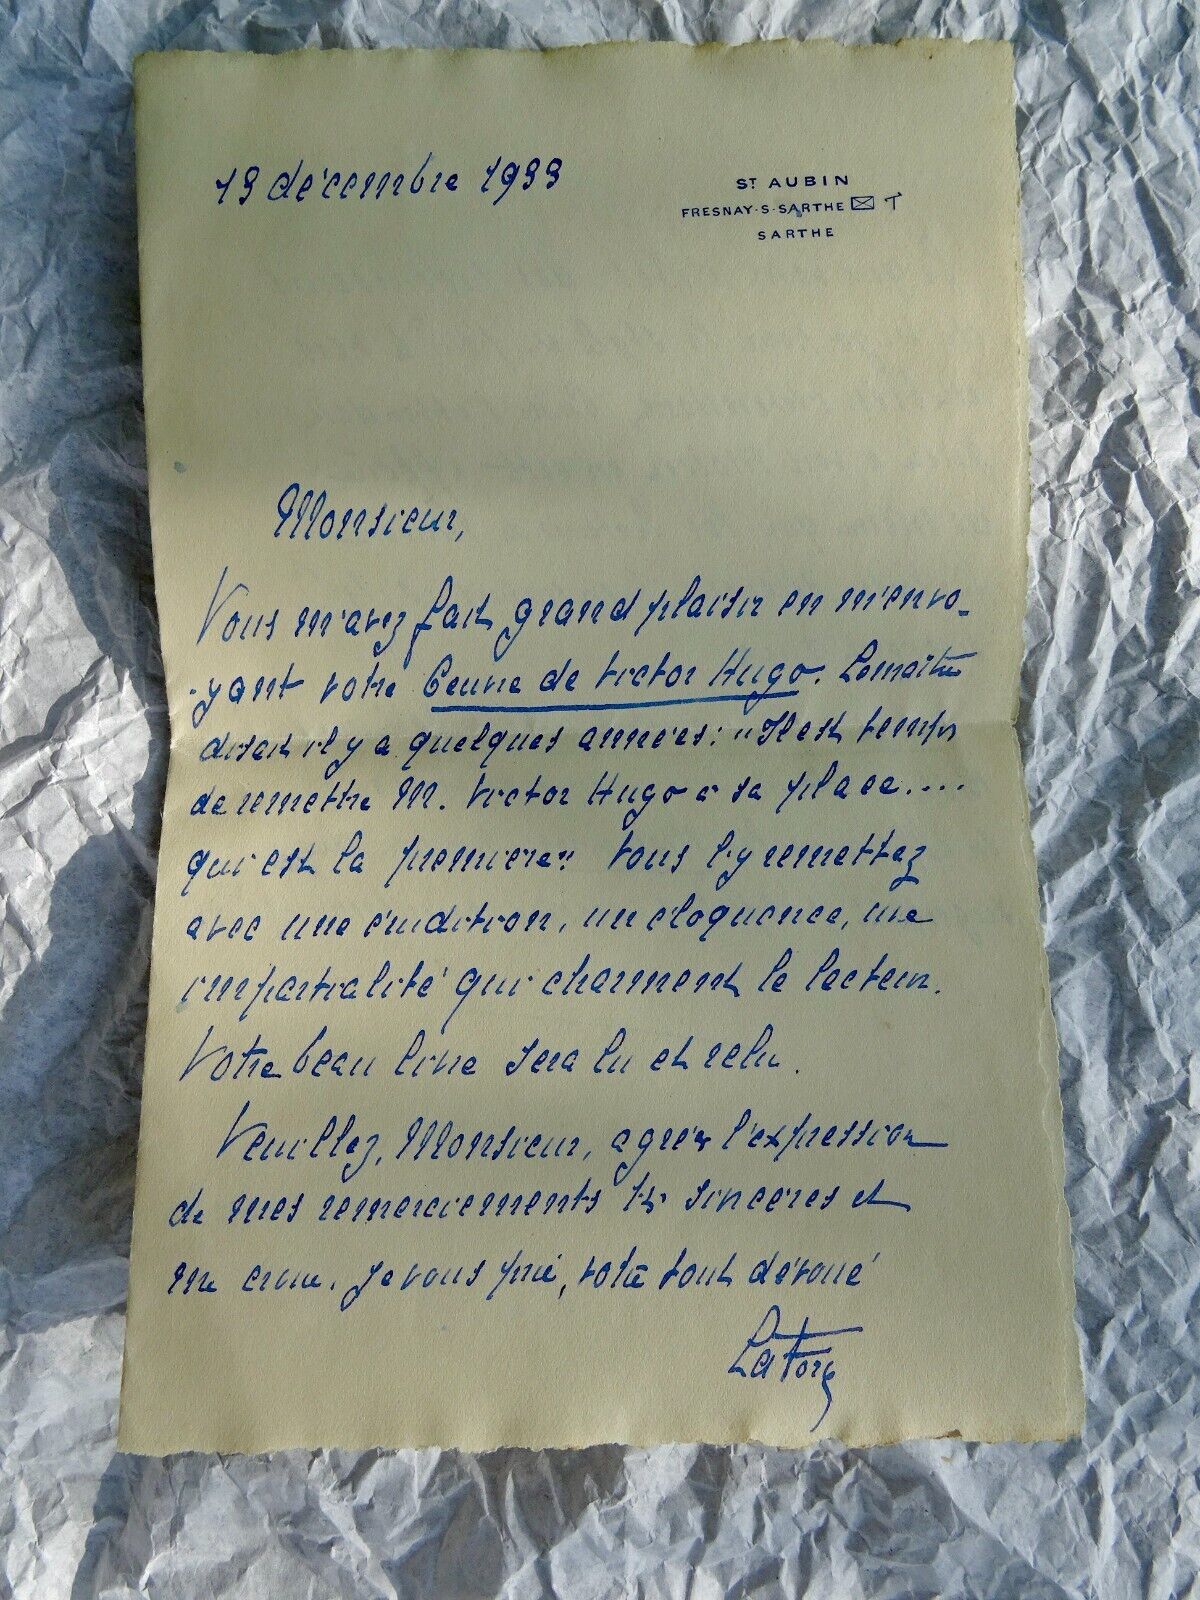 19 décembre 1933
ST AUBIN
FRESNAY-S-SARTHE
SARTHE
Monsieur,
Vous m'avez fait grand plaisir en m'envo-
yant votre Oeuvre de Victor Hugo. Lemaître
disait il y a quelques années: "Il est temps
de remettre M. Victor Hugo à sa place....
qui est la première" Vous l'y remettez
avec une érudition, une éloquence, une
impartialité qui charment le lecteur.
Votre beau livre sera lu et relu.
Veuillez, Monsieur, agréer l'expression
de mes remerciements trs sincères et
me croire, je vous prie, votre tout dévoué